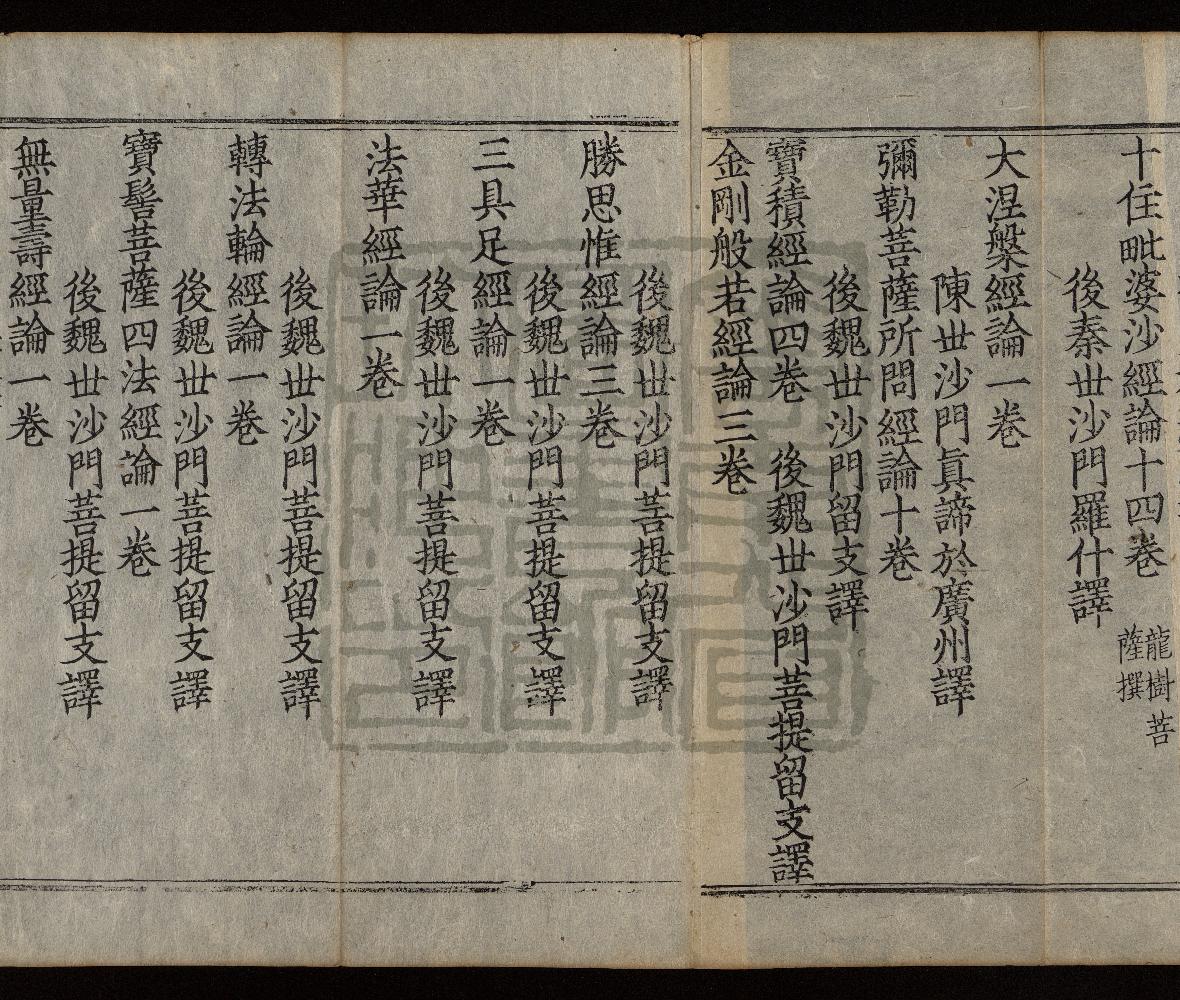 十住毗婆沙經論十四卷 龍樹菩薩撰
後秦世沙門羅什譯
大涅槃經論一卷
陳世沙門眞諦於廣州譯
彌勒菩薩所問經論十卷
後魏世沙門留支譯
寶積經論四卷 後魏世沙門菩提留支譯
金剛般若經論三卷
後魏世沙門菩提留支譯
勝思惟經論三卷
後魏世沙門菩提留支譯
三具足經論一卷
後魏世沙門菩提留支譯
法華經論一卷
後魏世沙門菩提留支譯
轉法輪經論一卷
後魏世沙門菩提留支譯
寶髻菩薩四法經論一卷
後魏世沙門菩提留支譯
無量壽經論一卷